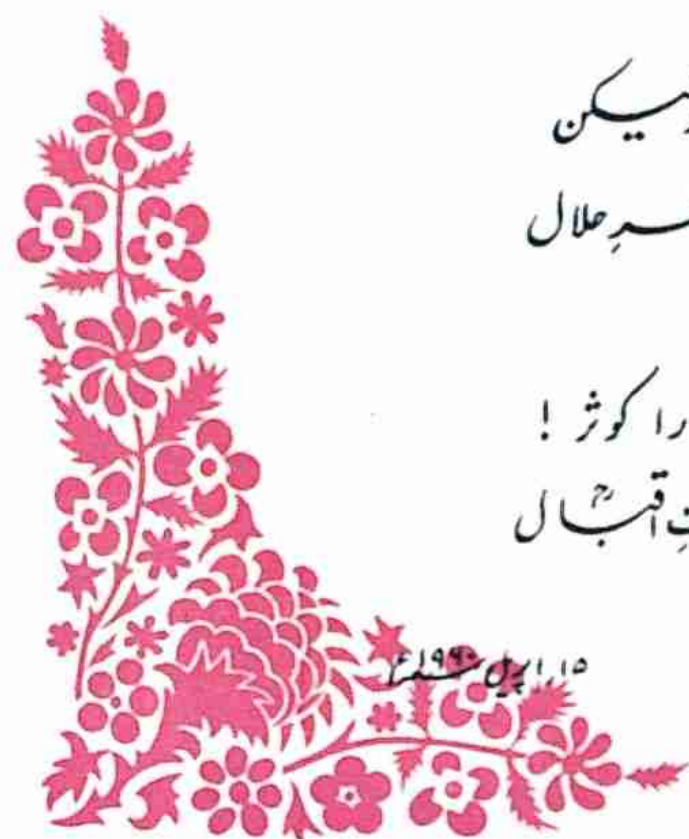 لیکن
حلال
را کوثر !
اقبالؒ
۱۵, اپریل ۱۹۹۰ء